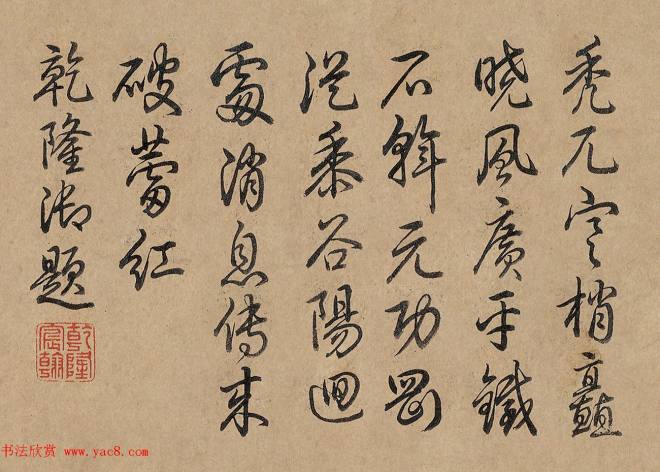 禿兀寒梢矗
曉風廣平鐵
石斡元功剛
從黍谷陽迴
處消息傳來
破蕾紅
乾隆御題
乾隆
宸翰
书法欣赏 www.yac8.com